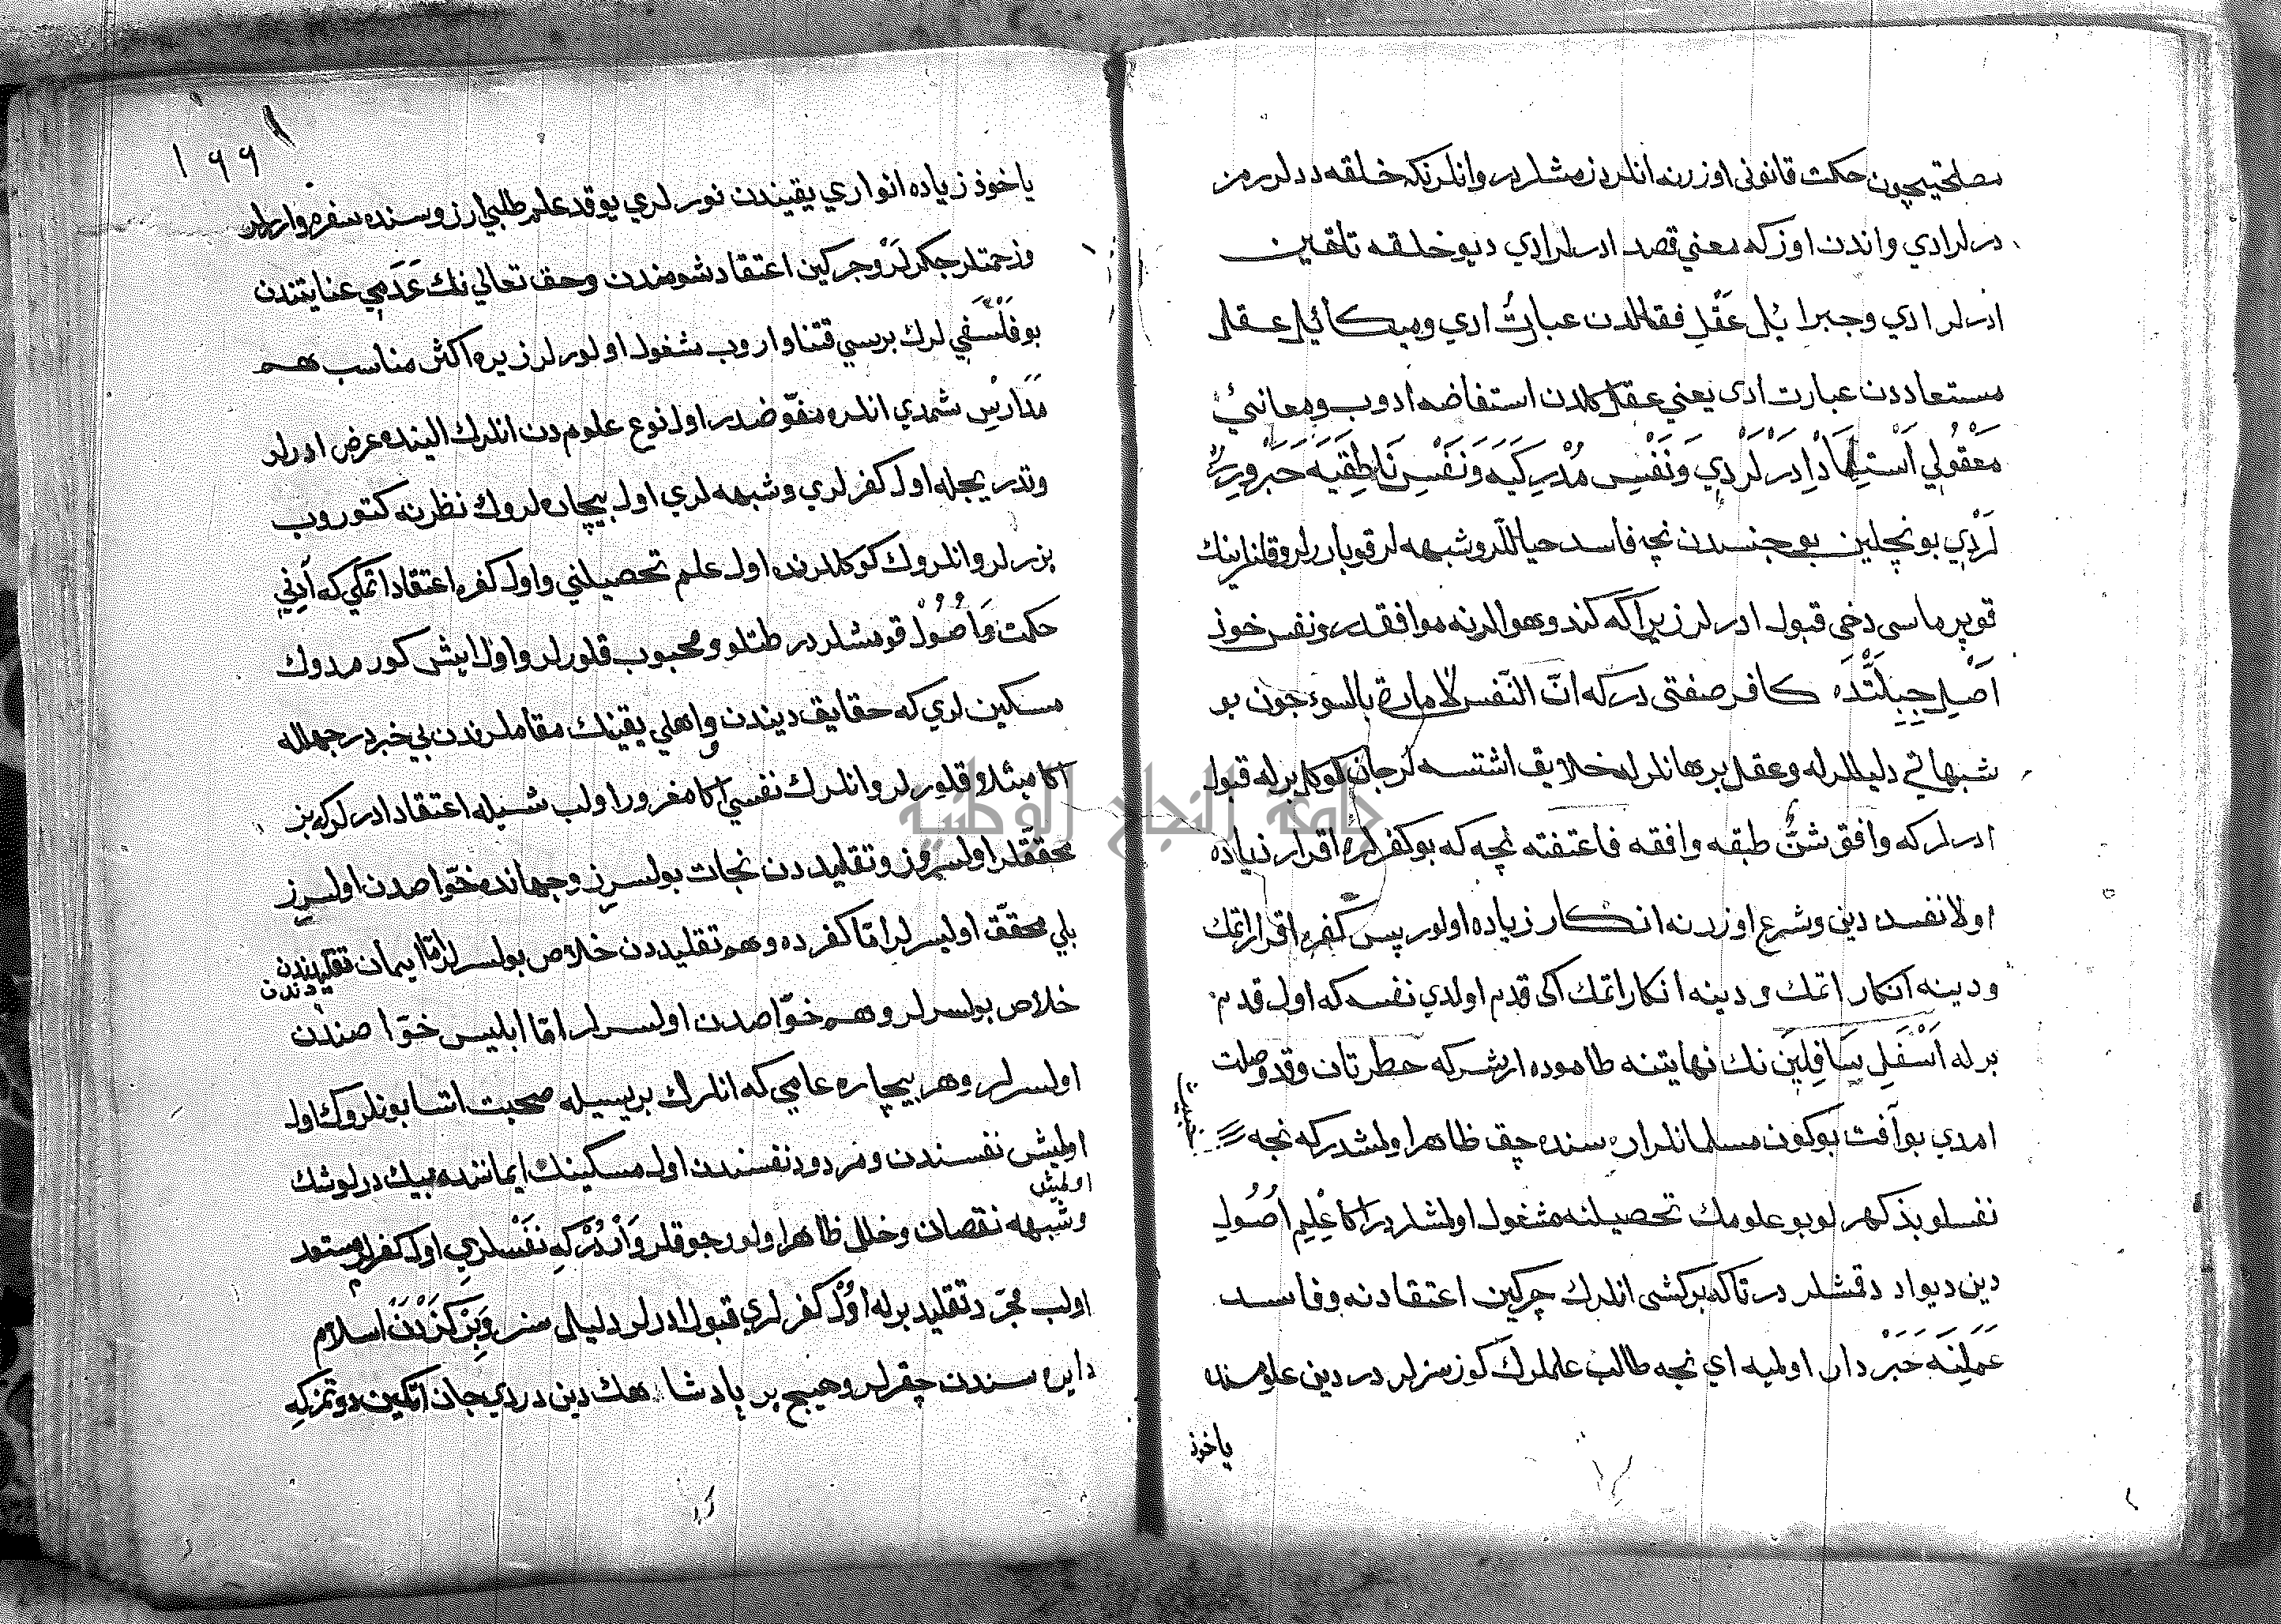 مصلحتیچون حکمت قانونی اوزرنه انلر دزمشلردر وانلرنکه خلقه ددلر رمز
درلرادي واندن اوزکه معني قصد ادرلرادي دیو خلقه تلقین
ادرلر ادي وجبرایُل عَقْلِ فعالدن عبارتْ ادي ومیکائیل عقلی
مستعاددن عبارت ادی یعني عقل کلدن استفاضه ادوب ومعانئِ
مَعْقُولِي اَسْتِ دِادَرْلَرْدِي وَنَفْسِ مُدْرِکَیَه وَنَفْسِ نَاطِقِیَه خَبَرْوِیرِ
لَرْدِي بونجلین بو جنسدن نجه فاسد خیاللر وشبهه لر قویارلر وقلنلرینك
قوپرماسی دخی قبول ادرلر زیرا که کندو هوالرنه موافقدر ونفس خوذ
اَصْلِ جِبِلَتْدَه کافر صفتی درکه انّ النّفس لامارة بالسوء جون بو
شبهاتي دلیللرله وعقل برهانلرله خلایق اشتسه لر جان کوکل برله قبول
ادرلر که وافق شنٌّ طبقه وافقه فاعتنقه نجه که بو کفرلره اقرار زیاده
اولا نفسده دینی وشرع اوزرنه انکار زیاده اولور پس کفره اقرار اتمك
ودینه انکار اتمك ودینه انکار اتمك اکی قدم اولدي نفسه که اول قدم
برله اَسْفَلِ سَافِلِین نك نهایتنه طاموده ارشر که خطرتان وقد وصلت
امدي بو آفت بو کون مسلمانلر اراسنده چق ظاهر اولمشدر که نجه
خبیث
نفسلو بذ کهرلو بو علومك تحصیلنه مشغول اولمشلردر اکا عِلْمِ اُصُولِ
دین دیو اد دقشلر در تاکه بر کشی انلرك چرکین اعتقادنه وفاسد
عَمَلِنَه خَبَرْ دار اولمیه اي نجه طالب علملرك کوزسزلر در دین علومنده
یاخوذ
١٩٩
یاخوذ زیاده انواري یقیندن نورلري یوقدر علم طلبي ارزوسنده سفره وارلر
وزحمتلر جکرلَرْ وجرکین اعتقاد شومندن وحق تعالي نك عَدَمِي عنایتندن
بو فَلْسَفِي لرك بریسي قتنا واروب مشغول اولورلر زیره اکثر مناسب هم
مَدَارِسْ شمدي انلره مفوّضدر اول نوع علومدن انلرك الینده عرض ادرلر
وتدریجله اول کفرلري وشبهه لري اول بیچاره لروك نظرنه کتوروب
بزرلر وانلروك کوکللرنده اول علم تحصیلني واول کفره اعتقاد اتمکي که آدِني
حکمت وَاُصُولْ قومشلردر طتلو ومحبوب قلورلر واول ایش کورمدوك
مسکین لري که حقایق دیندن واهلي یقینك مقاملرندن بي خبردر جهلاله
اکا مبتلا قلورلر وانلرك نفسي اکا مغرور اولب شیله اعتقاد ادرلر که بز
محقّقلر اولسروز وتقلیددن نجات بولسرز وجهانده خوّاصدن اولسرز
بلي محقّق اولیسرلر امّا کفرده وهم تقلیددن خلاص بولسرلر امّا ایمان تقلیدندن
خلاص بولسرلر وهم خوّاصدن اولسرلر امّا ابلیس خوّاصندن
اولسرلر وهر بیچاره عامي که انلرك بریسیله صحبت اتسا بونلروك اول
اولمیش نفسندن ومردود نفسندن اول مسکینك ایماننده بیك درلو شك
اولمیش
وشبهه نقصان وخلل ظاهر اولور جوقلر واَرْدُرْکِه نَفْسلرِي اول کفرلره مستعد
اولب مجرّد تقلید برله اوُل کفرلري قبول ادرلر دلیلی سز وَبِرْ کَزْدَن اسلام
دایره سندن چقرلر وهیچ بر پادشاهك دین دردي جان اتکین دوتمز که